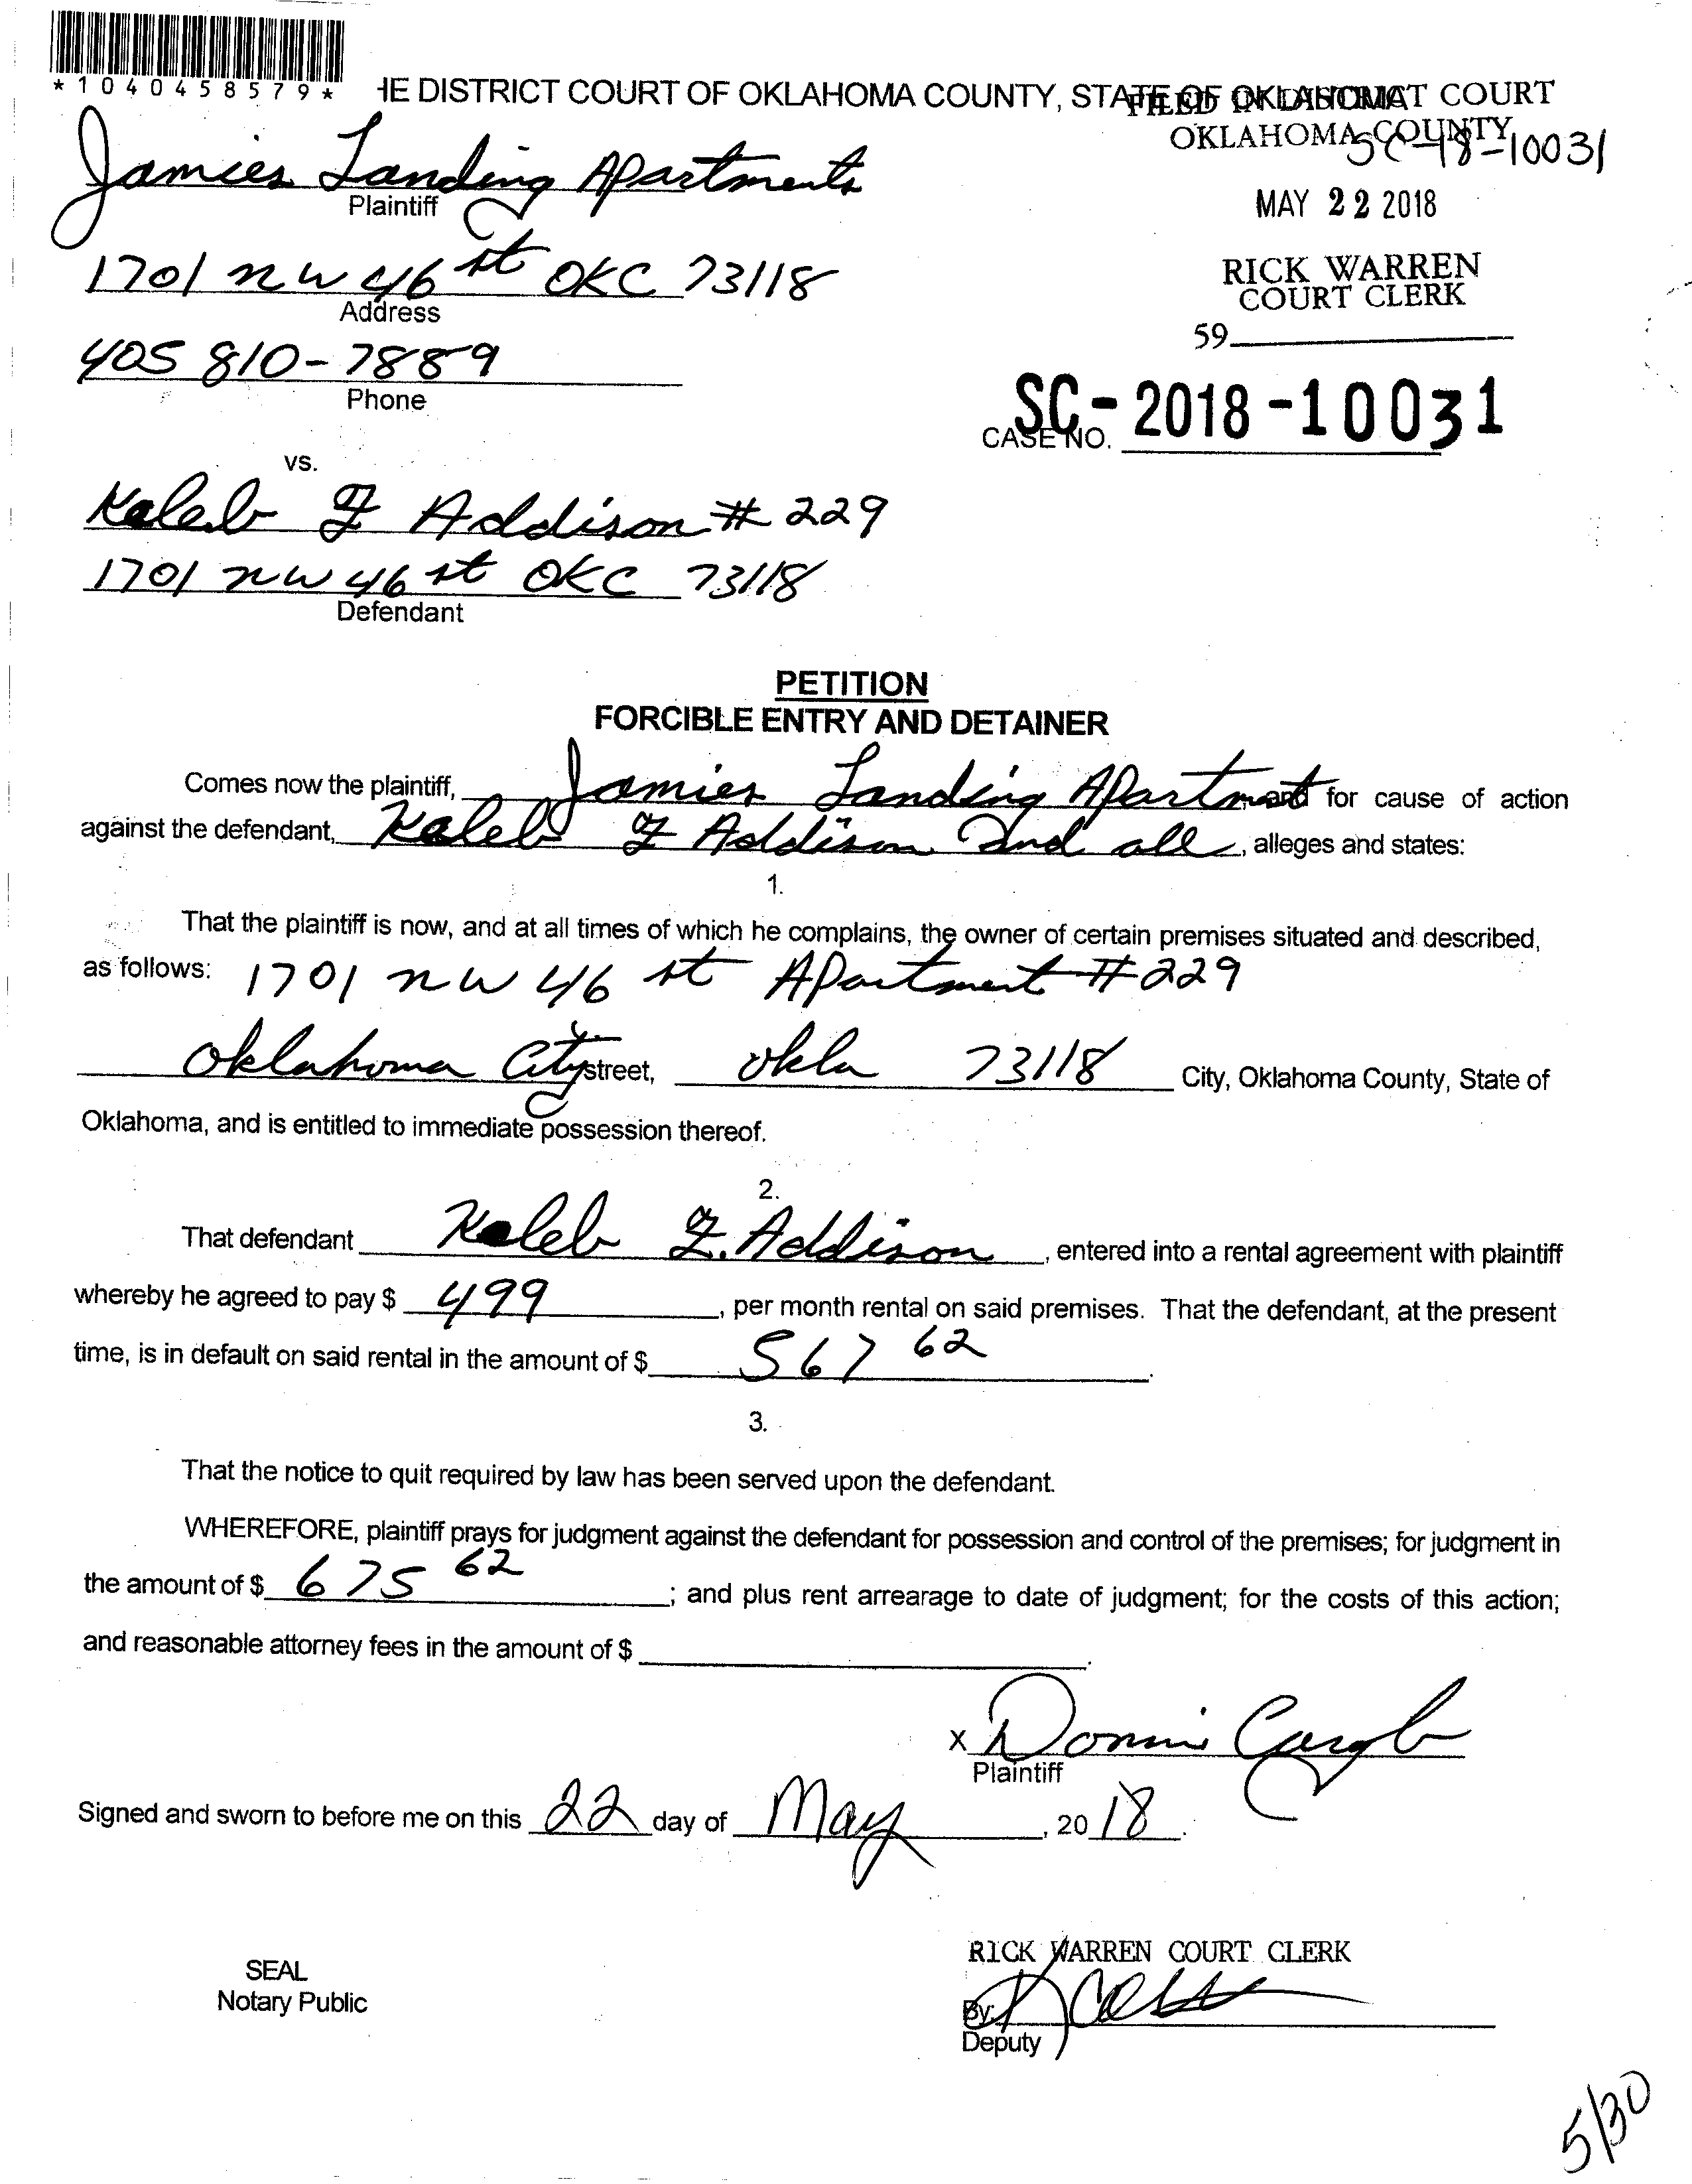 *1040458579*
HE DISTRICT COURT OF OKLAHOMA COUNTY, STATE OF OKLAHOMA
FILED IN DISTRICT COURT
OKLAHOMA COUNTY
SC-18-10031
Jamies Landing Apartments
Plaintiff
MAY 22 2018
1701 NW 46 st OKC 73118
Address
RICK WARREN
COURT CLERK
59
405 810-7889
Phone
SC-2018-10031
CASE NO.
vs.
Kaleb Z Addison #229
1701 NW 46 st OKC 73118
Defendant
PETITION
FORCIBLE ENTRY AND DETAINER
Comes now the plaintiff, Jamies Landing Apartment and for cause of action
against the defendant, Kaleb Z Addison and all, alleges and states:
1.
That the plaintiff is now, and at all times of which he complains, the owner of certain premises situated and described,
as follows: 1701 NW 46 st Apartment #229
Oklahoma City street, Okla 73118 City, Oklahoma County, State of
Oklahoma, and is entitled to immediate possession thereof.
2.
That defendant Kaleb Z. Addison, entered into a rental agreement with plaintiff
whereby he agreed to pay $ 499, per month rental on said premises. That the defendant, at the present
time, is in default on said rental in the amount of $ 567 62.
3.
That the notice to quit required by law has been served upon the defendant.
WHEREFORE, plaintiff prays for judgment against the defendant for possession and control of the premises; for judgment in
the amount of $ 675 62; and plus rent arrearage to date of judgment; for the costs of this action;
and reasonable attorney fees in the amount of $ .
X
Plaintiff
Signed and sworn to before me on this 22 day of May, 2018.
RICK WARREN COURT CLERK
SEAL
Notary Public
By:
Deputy
5/30